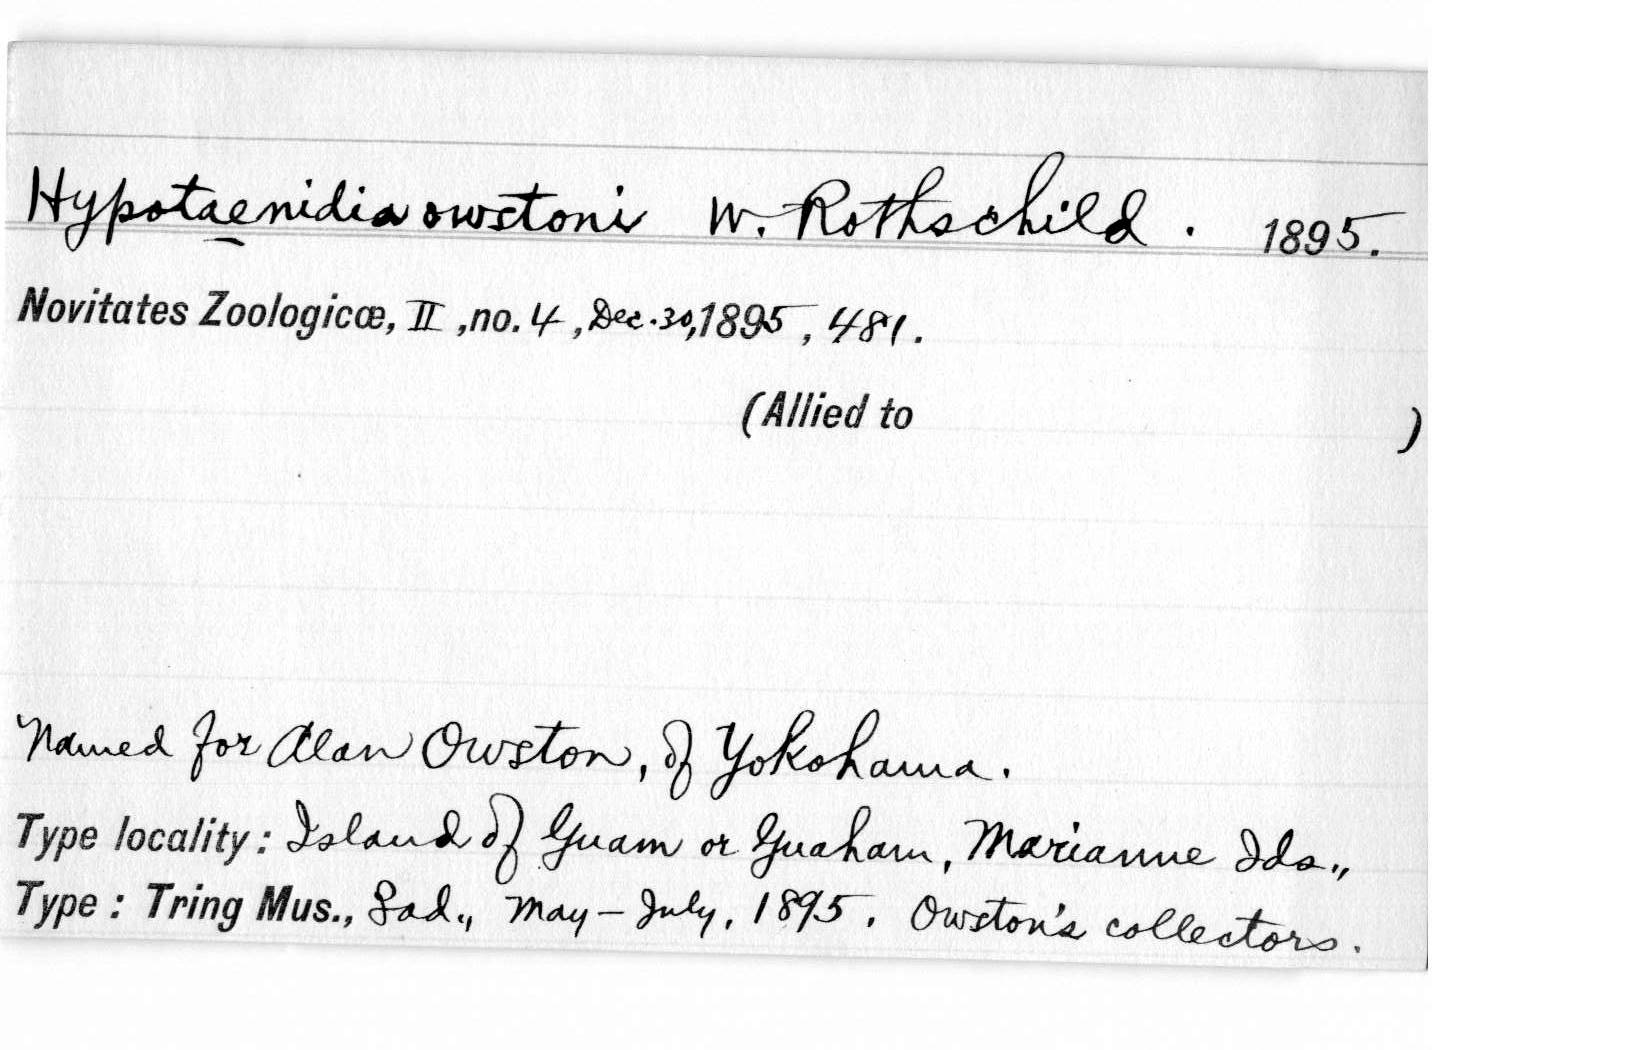 Hypotaenidia owstoni W. Rothschild. 1895.
Novitates Zoologicæ, II, no. 4, Dec. 30, 1895, 481.
(Allied to )
Named for Alan Owston, of Yokohama.
Type locality: Island of Guam or Guaham, Marianne Ids.,
Type: Tring Mus., ad., May – July, 1895. Owston's collectors.